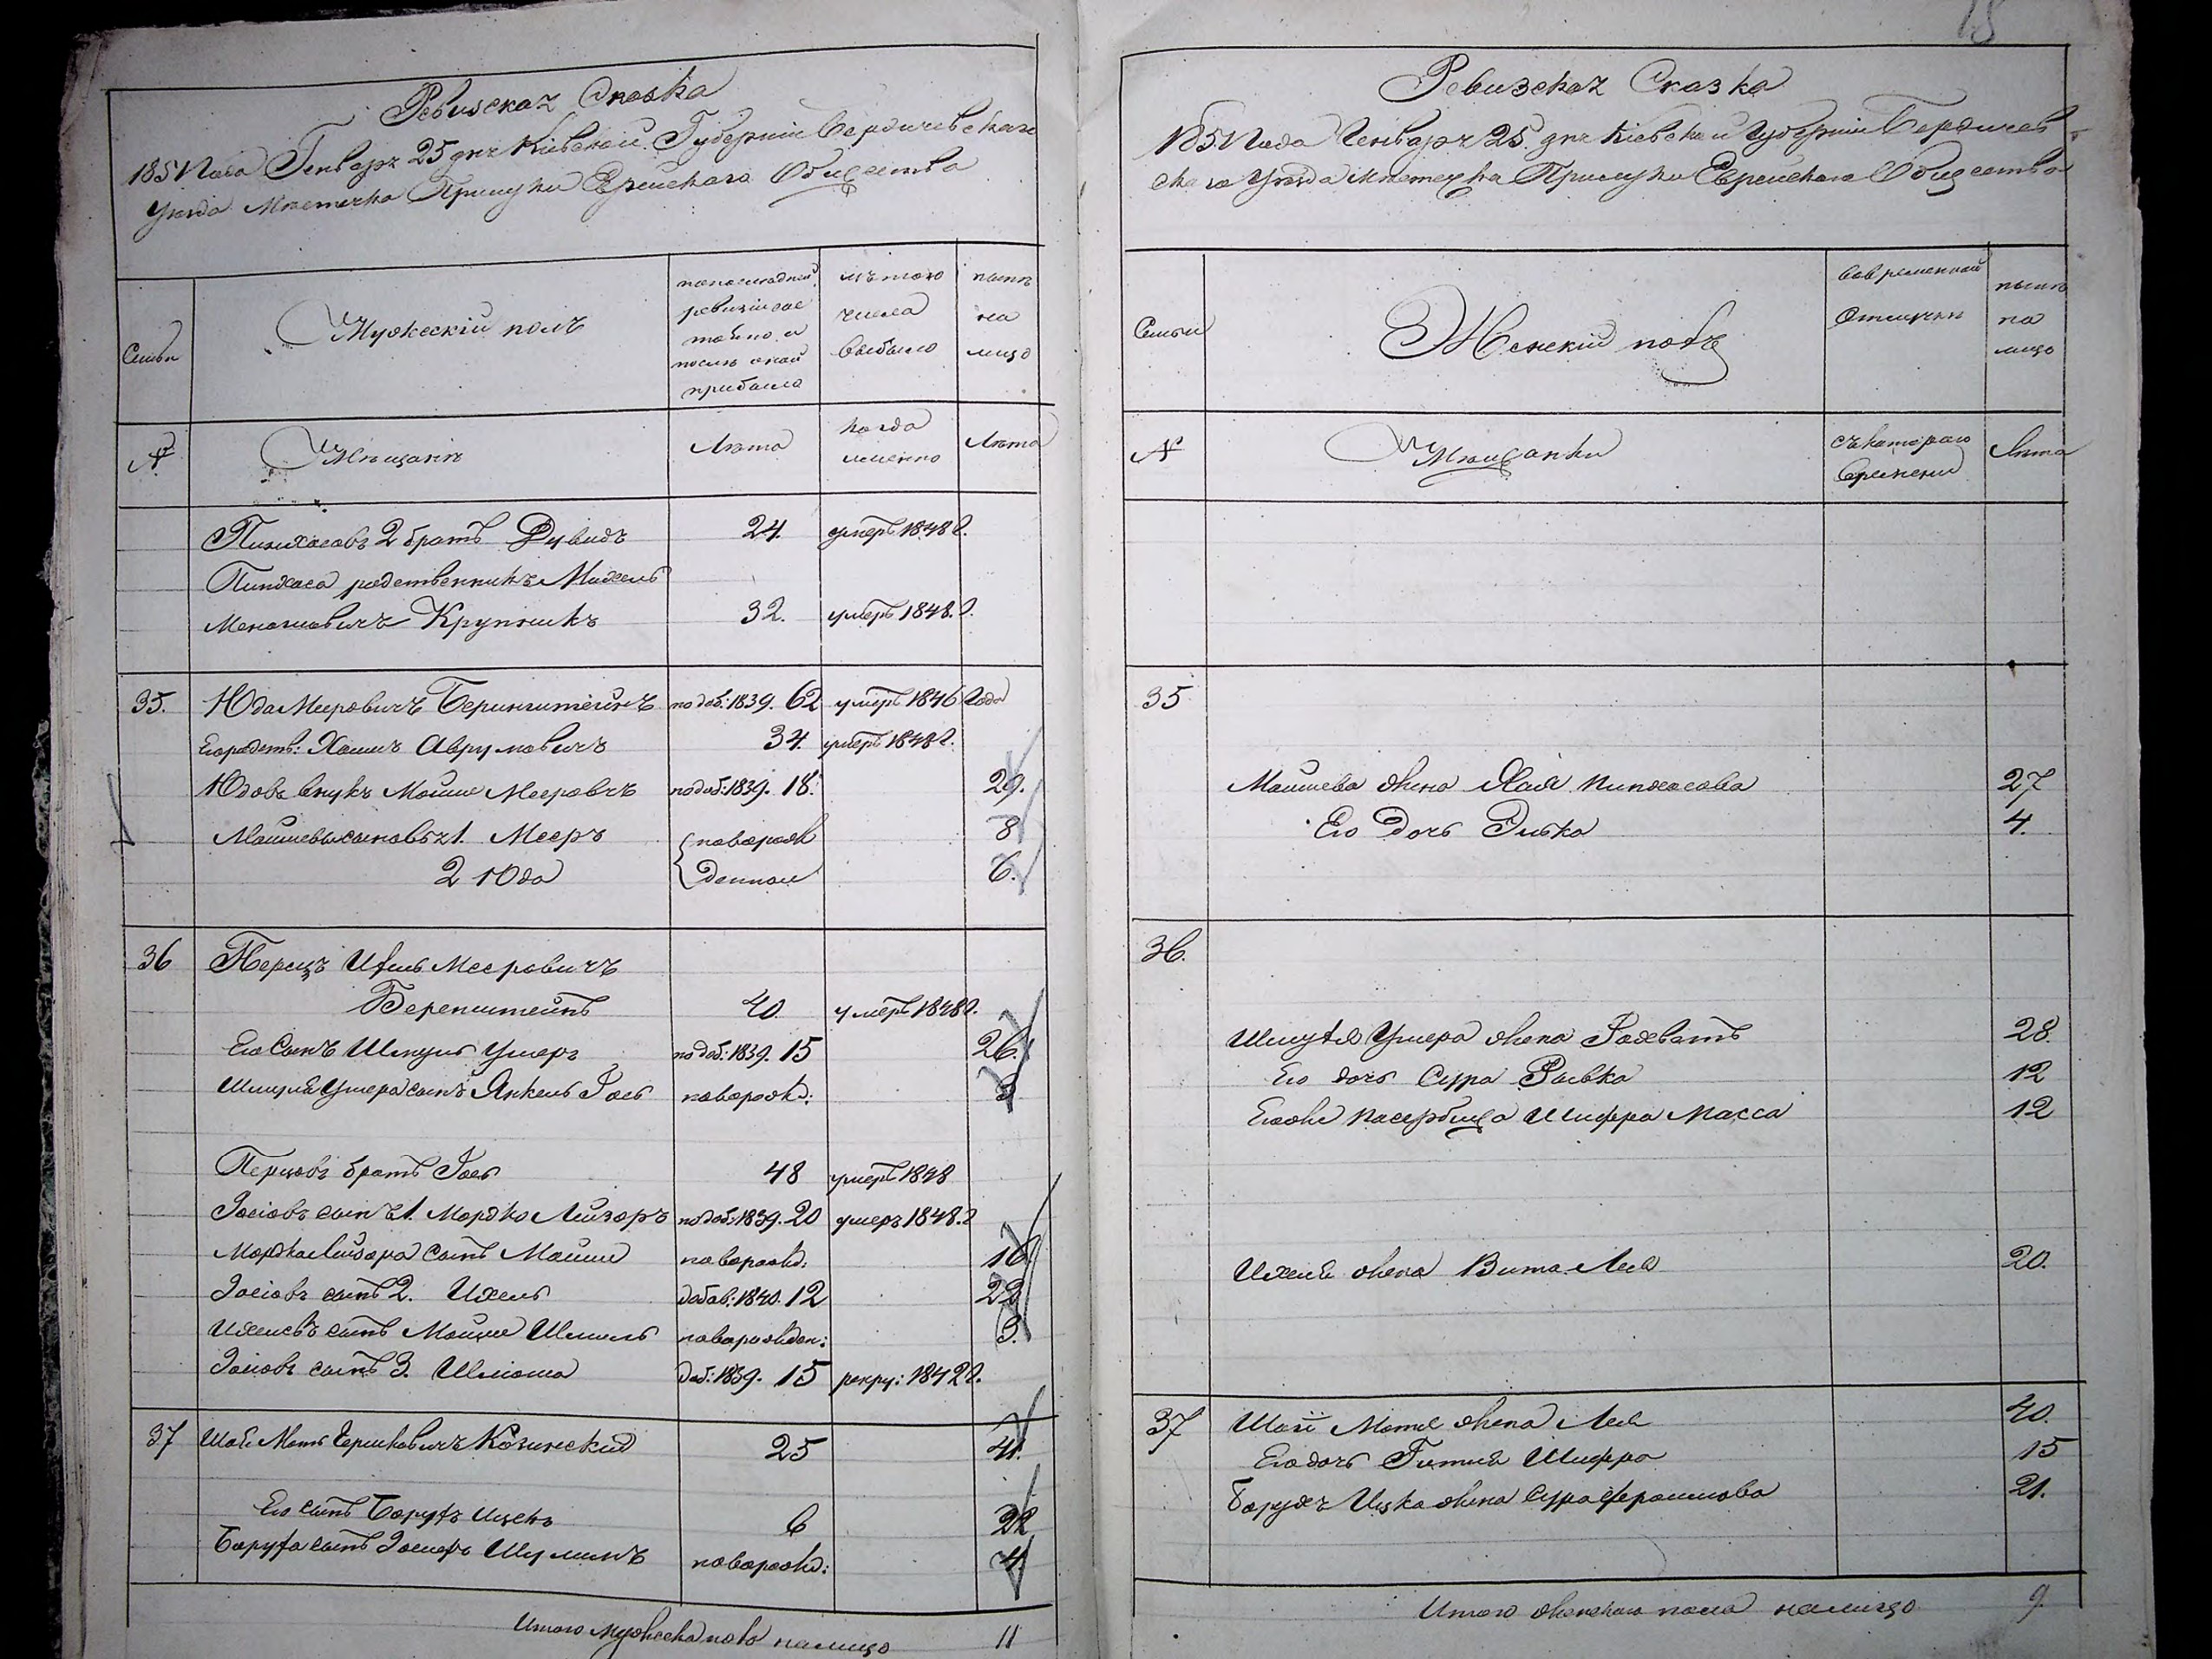 Ревизская Сказка
1851 Года Генваря 25 дня Кіевской Губерніи Бердичевскаго
уезда Мѣстечка Прилуки Еврейскаго Общества
Семьи
Мужескій полъ
по последней
ревизіи сос
тояло и
послѣ оной
прибыло
изъ того
числа
выбыло
нынѣ
на
лицо
№
Мѣщанѣ
Лѣта
когда
именно
Лѣта
Пинхасовъ 2 братъ Дувидъ 24. умеръ 1848 г.
Пинхаса родственникъ Михель
Меношовичъ Крупникъ 32. умеръ 1848. г.
35. Юда Мееровичъ Беринштейнъ по доб: 1839. 62 умеръ 1846 Года
Его родств: Хаимъ Аврумовичъ 34. умеръ 1848 г.
Юдовъ внукъ Мошие Мееровъ по доб: 1839. 18. 29.
Мошиевы сыновья 1. Мееръ новорож 8
2 Юда денные 6.
36 Перецъ Ихиль Мееровичъ
Беренштейнъ 40. умеръ 1848 г.
Его Сынъ Шмуль Ушеръ по доб: 1839. 15 26.
Шмуля Ушера сынъ Янкель Іось новорожд: 3
Перцовъ братъ Іось 48 умеръ 1848
Іосіовъ сынъ 1. Мордко Лейзоръ по доб: 1839. 20 умеръ 1848. г
Мордка Лейзора сынъ Мошие новорожд: 10
Іосіовъ сынъ 2. Ихель добав: 1840. 12 22
Ихелевъ сынъ Мошие Шмиль новорожден: 3.
Іосіовъ сынъ 3. Шліома доб: 1839. 15 рекру: 1842 г.
37 Шая Моть Гершковичъ Козинский 25 41.
Его сынъ Борухъ Ицекъ 6 22
Боруха сынъ Іосифъ Шулимъ новорожд: 4
Итого Мужеска пола налицо 11
15
Ревизская Сказка
1851 Года Генваря 25. дня Кіевской Губерніи Бердичев
скаго Уезда Мѣстечка Прилуки Еврейскаго Общества
Семьи
Женскій полъ
Вовременной
Отлучки
нынѣ
на
лицо
№
Мѣщанки
съ котораго
времени
Лѣта
35
Мошиева жена Хая Пинхасова 27
Его дочь Элька 4.
36.
Шмуля Ушера жена Рахвать 28.
Его дочь Сура Рывка 12
Его же Пасербица Шифра Масса 12
Ихеля жена Вита Лея 20.
37 Шаи Мотя жена Лея 40.
Его дочь Гитля Шифра 15
Борухъ Ицка жена Сура Ферошмова 21.
Итого женскаго пола налицо 9